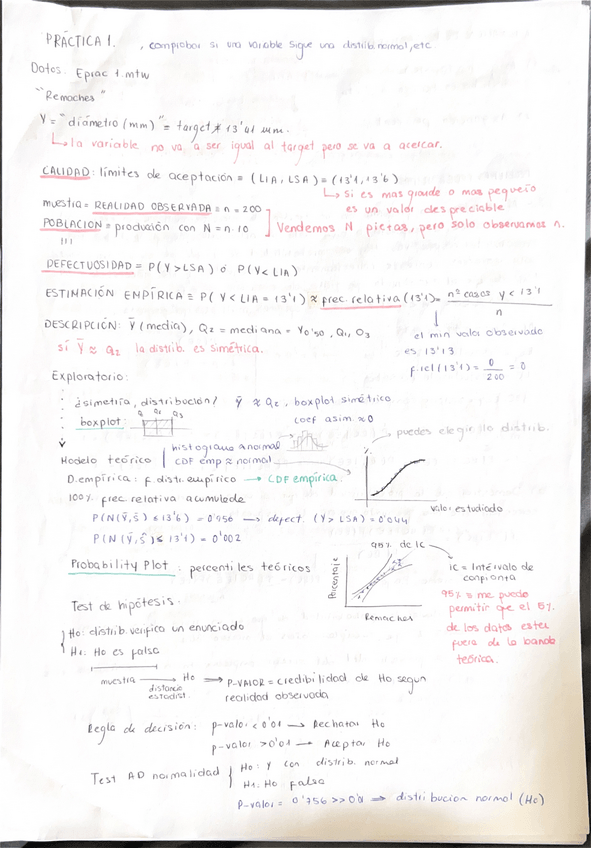 PRÁCTICA 1. , comprobar si una variable sigue una distrib normal, etc.
Datos. Eprac 1.mtw
"Remaches"
Y = "diámetro (mm)" = target ≠ 13'41 mm.
↳ la variable no va a ser igual al target pero se va a acercar.
CALIDAD: límites de aceptación = (LIA, LSA) = (13'1, 13'6)
↳ si es mas grande o mas pequeño es un valor despreciable
muestra = REALIDAD OBSERVADA = n = 200
POBLACION = producción con N = n·10
Vendemos N piezas, pero solo observamos n.
!!!
DEFECTUOSIDAD = P(Y > LSA) ó P(Y < LIA)
ESTIMACIÓN EMPÍRICA = P(Y < LIA = 13'1) ≈ frec. relativa (13'1) = nº casos y < 13'1 / n
DESCRIPCIÓN: Ȳ (media), Q2 = mediana = Y0'50, Q1, Q3
si Ȳ ≈ Q2 la distrib. es simétrica.
el min valor observado
es 13'13
f.rel(13'1) = 0/200 = 0
Exploratorio:
¿simetría, distribución? ȳ ≈ Q2, boxplot simétrico
coef asim. ≈ 0
boxplot:
puedes elegir la distrib.
Modelo teórico
histograma ≈ normal
CDF emp ≈ normal
D. empírica: f distr. empírico → CDF empírica.
100% frec relativa acumulada
valor estudiado
P(N(Ȳ,ŝ) ≤ 13'6) = 0'956 → defect. (Y > LSA) = 0'044
P(N(Ȳ,ŝ) ≤ 13'1) = 0'002
Probability Plot: percentiles teóricos
95% de IC
Porcentaje
Remaches
IC = Intervalo de confianza
95% = me puedo
permitir que el 5%
de los datos esten
fuera de la banda
teórica.
Test de hipótesis.
H0: distrib verifica un enunciado
H1: H0 es falsa
muestra → H0 ⇒ P-VALOR = credibilidad de H0 segun
distancia estadíst.
realidad observada
Regla de decisión: p-valor < 0'01 → Rechazar H0
p-valor > 0'01 → Aceptar H0
Test AD normalidad
H0: Y con distrib. normal
H1: H0 falsa
P-valor = 0'756 >> 0'01 ⇒ distribucion normal (H0)